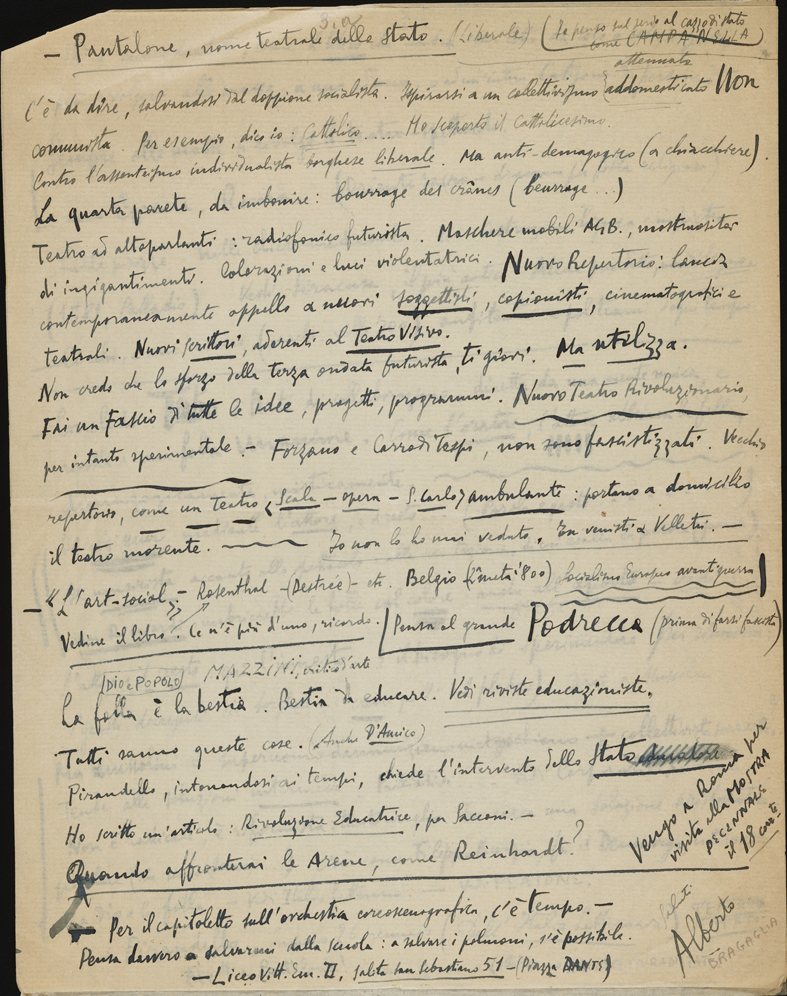 – Pantalone, nome teatrale dello Stato. (Liberale) (Io penso sul serio al cazzo di stato
come CAMPANELLA)
attenuato
C'è da dire, salvandosi dal doppione socialista. Ispirarsi a un collettivismo addomesticato Non
comunista. Per esempio, dico io: Cattolico.... Ho scoperto il Cattolicesimo.
Contro l'assenteismo individualista borghese liberale. Ma anti-demagogico (a chiacchiere).
La quarta parete, da imbonire: bourrage des crânes (beurrage...)
Teatro ad altoparlanti: radiofonico futurista. Maschere mobili AGB.,
di ingigantimento. Colorazioni e luci violentatrici. Nuovo Repertorio: lancia
contemporaneamente appello a nuovi soggettisti, copionisti, cinematografici e
teatrali. Nuovi scrittori, aderenti al Teatro Visivo.
Non credo che lo sforzo della terza ondata futurista, ti giovi. Ma utilizza.
Fai un Fascio di tutte le idee, progetti, programmi. Nuovo Teatro Rivoluzionario,
per intanto sperimentale. – Forzano e Carro di Tespi, non sono fascistizzati. Vecchio
repertorio, come un Teatro (Scala – opera – S. Carlo) ambulante: portano a domicilio
il teatro morente. Io non lo ho mai veduto. Tu venisti a Velletri. –
– "L'art-social" – Rosenthal – (Destrée) – etc. Belgio (2ª metà '800) Socialismo Europeo avantiguerra
Vedine il libro. Ce n'è più d'uno, ricordo. Pensa al grande Podrecca (prima di farsi fascista)
DIO e POPOLO MAZZINI, critico d'arte
La folla è la bestia. Bestia da educare. Vedi riviste educazioniste.
Tutti sanno queste cose. (Anche D'Amico)
Pirandello, intonandosi ai tempi, chiede l'intervento dello Stato
Ho scritto un'articolo: Rivoluzione Educatrice, per Sacconi. –
Quando affronterai le Arene, come Reinhardt?
– Per il capitoletto sull'orchestica coreoscenografica, c'è tempo. –
Pensa davvero a salvarmi dalla scuola: a salvare i polmoni, s'è possibile.
– Liceo Vitt. Em. II, salita san Sebastiano 51 – (Piazza DANTE)
Vengo a Roma per
visita alla MOSTRA
DECENNALE
il 18 corr.te
Saluti
Alberto
BRAGAGLIA